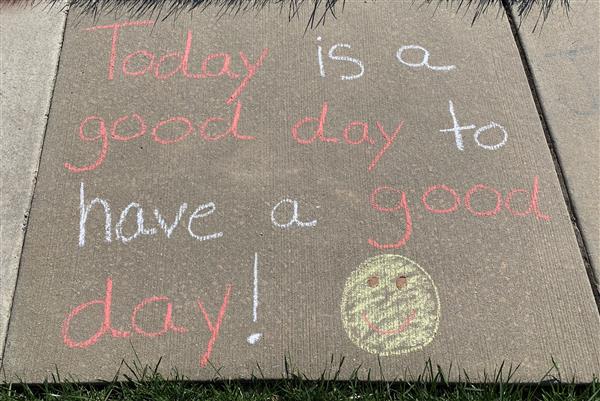 Today is a
good day to
have a good
day!